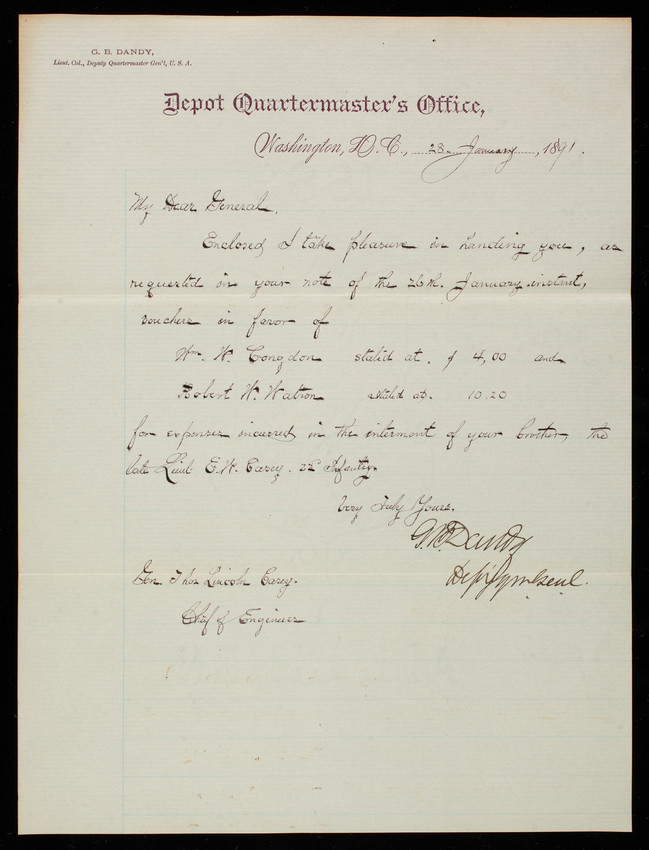 G. B. DANDY,
Lieut. Col., Deputy Quartermaster Gen'l, U. S. A.
Depot Quartermaster's Office,
Washington, D. C., 28 January, 1891.
My Dear General,
Enclosed I take pleasure in handing you, as
requested in your note of the 26th. January instant,
vouchers in favor of
Wm. W. Congdon stated at. $ 4,00 and
Robert W. Watson stated at. 10.20
for expenses incurred in the interment of your brother, the
late Lieut E. W. Casey. 22d Infantry.
Very Truly Yours.
G. B. Dandy
Dep Q m Genl.
Gen. Thos Lincoln Casey.
Chief of Engineers